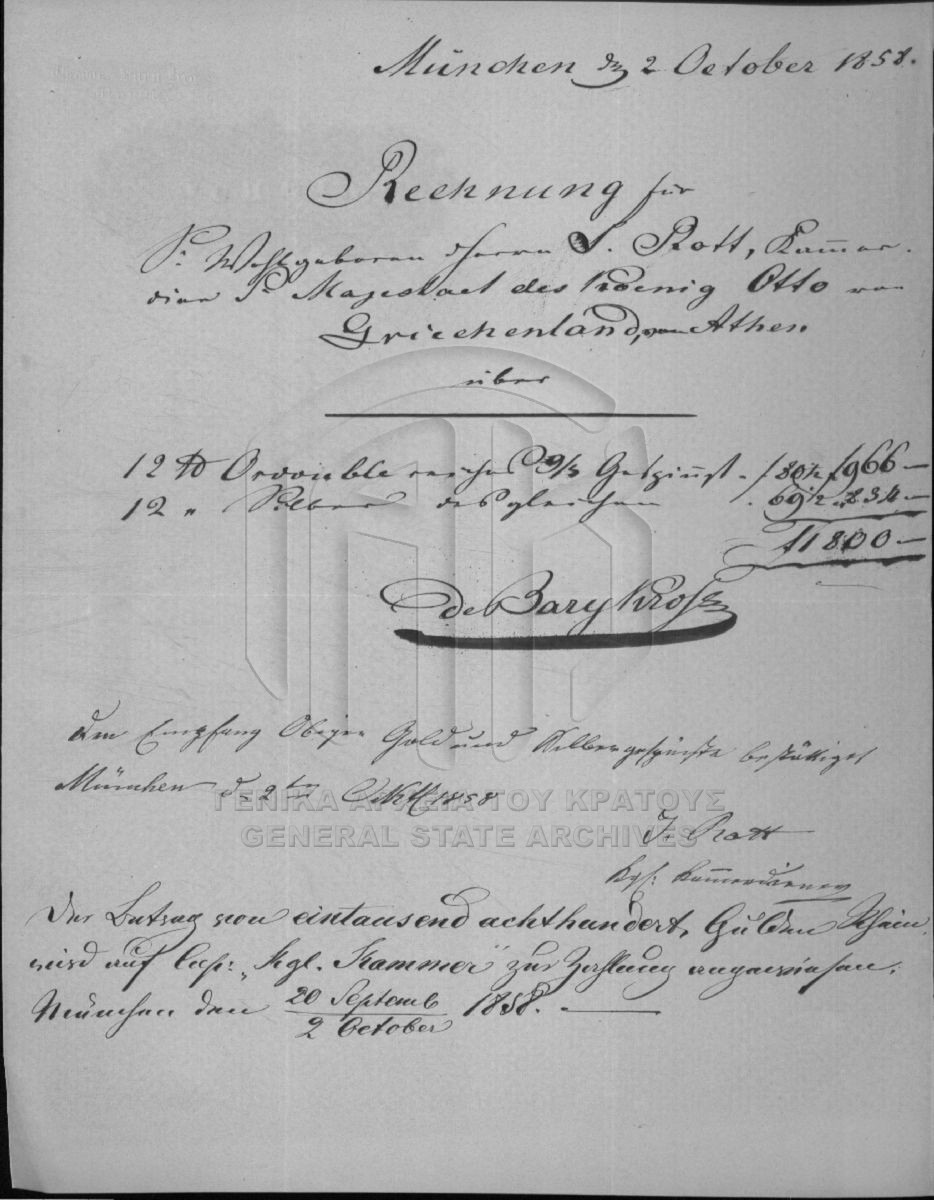 München den 2 October 1858.
Rechnung für
Sr. Wohlgeboren Herrn J. Rott, Kammer-
dien Sr. Majestaet des Koenig Otto von
Griechenland, von Athen
über
12 ℔ Ordouble reiches 9/3 Gespinnst . f 80½ f 966 —
12 „ Silber desgleichen . 69½ „ 834 —
f 1800 —
de Bary
Den Empfang Obigen Gold und Silbergespinste bestättiget
München d. 2ten Okt 1858
J. Rott
Kgl: Kammerdiener
Der Betrag von eintausend achthundert, Gulden Rhein.
wird auf Cap: „Kgl. Kammer" zur Zahlung angewiesen.
München den 20 Septemb / 2 October 1858. —
ΓΕΝΙΚΑ ΑΡΧΕΙΑ ΤΟΥ ΚΡΑΤΟΥΣ
GENERAL STATE ARCHIVES